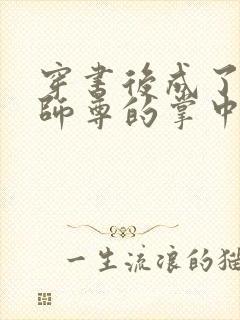 穿書後成了
師尊的掌中
一生流浪的貓